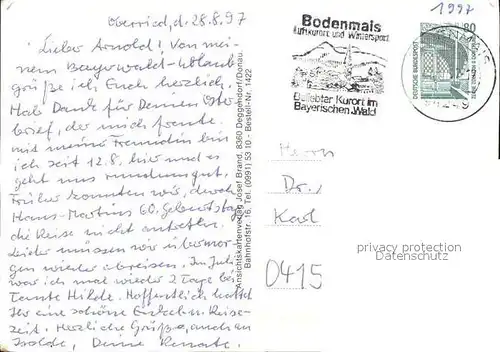 Oberried, d. 28.8.97
Lieber Arnold! Von mei-
nem Bayerwald-Urlaub
grüße ich Euch herzlich.
Hab Dank für Deinen
brief, der mich freute.
mit meine Freundin bin
ich seit 12.8. hier und es
geht uns rundum gut.
Früher konnten wir, durch
Hans-Martins 60. Geburtstag,
die Reise nicht antreten.
Leider müssen wir übermor-
gen wieder abreisen. Im Juli
war ich mal wieder 2 Tage bei
Tante Hilde. Hoffentlich hattet
Ihr eine schöne Urlaub-Reise-
zeit. Herzliche Grüße, auch an
Isolde, Deine Renate.
Ansichtskartenverlag Josef Brand, 8360 Deggendorf/Donau,
Bahnhofstr. 16, Tel. (0991) 53 10 - Bestell-Nr. 1422
1997
Bodenmais
Luftkurort und Wintersport
Beliebter Kurort im
Bayerischen Wald
80
DEUTSCHE BUNDESPOST
94249
Herrn
Dr.
Karl
0415
privacy protection
Datenschutz